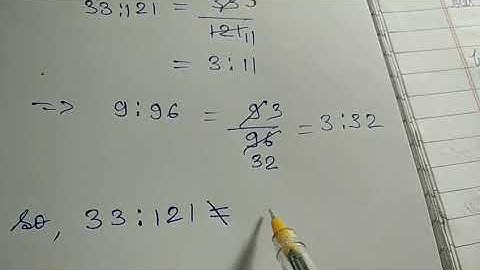 33:121 = 33 3 / 121 11
= 3:11
=> 9:96 = 9 3 / 96 32 = 3:32
So, 33:121 ≠